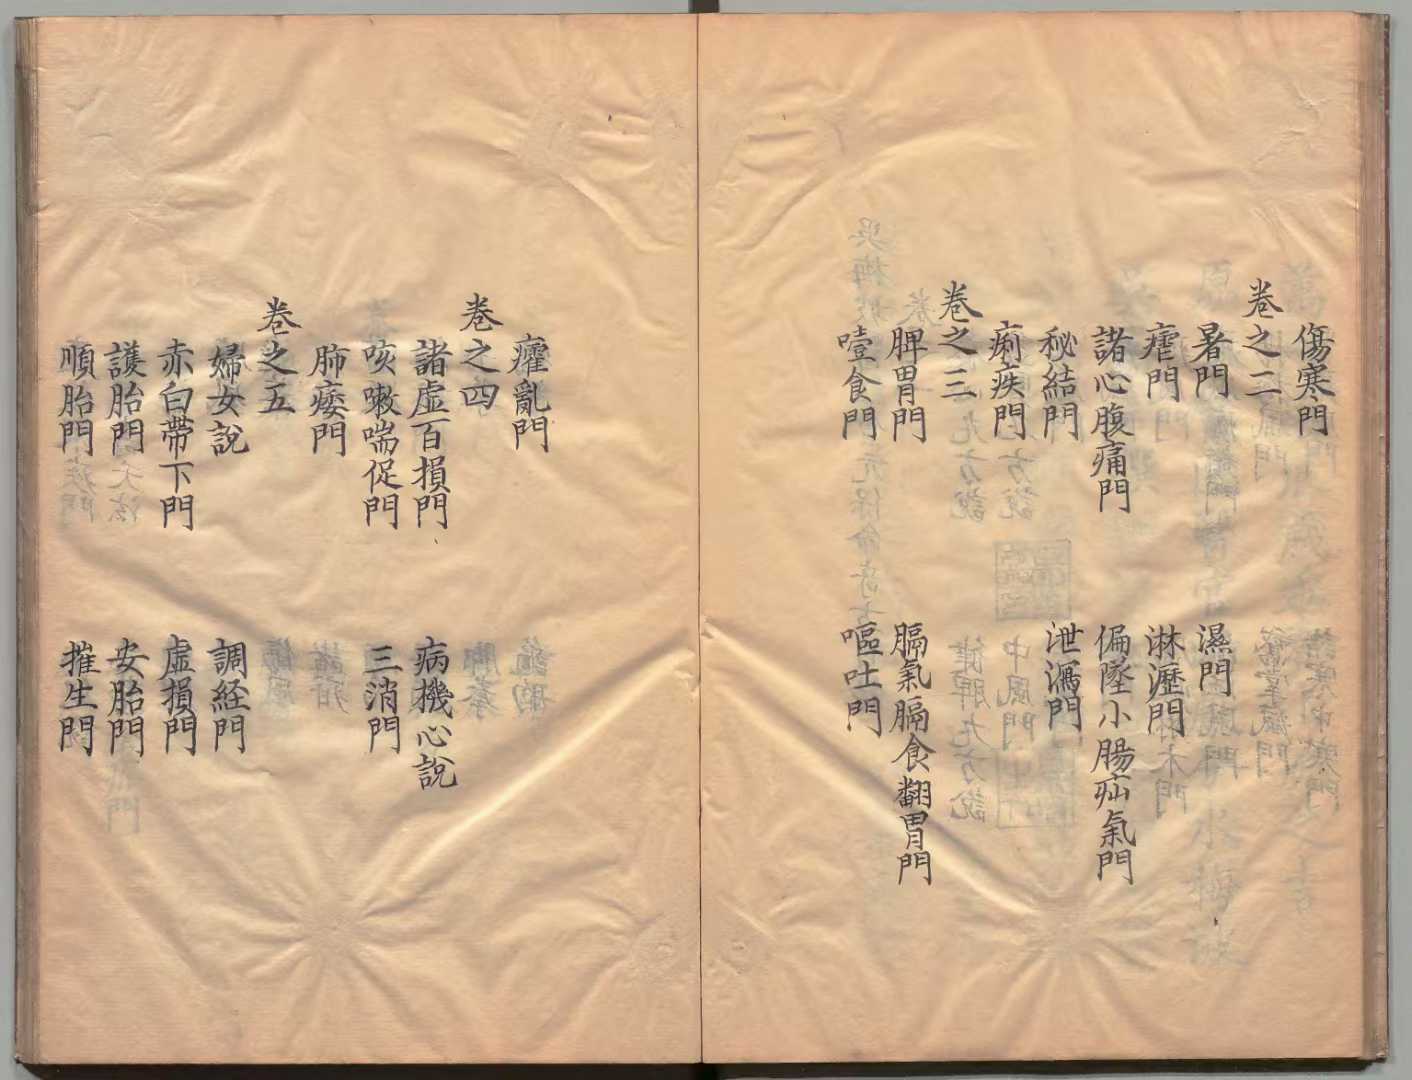 傷寒門
卷之二
暑門 濕門
瘧門 淋瀝門
諸心腹痛門 偏墜小腸疝氣門
秘結門 泄瀉門
痢疾門
卷之三
脾胃門 膈氣膈食翻胃門
噎食門 嘔吐門
癨亂門
卷之四
諸虛百損門 病機心說
咳嗽喘促門 三消門
肺痿門
卷之五
婦女說 調経門
赤白帶下門 虛損門
護胎門 安胎門
順胎門 摧生門